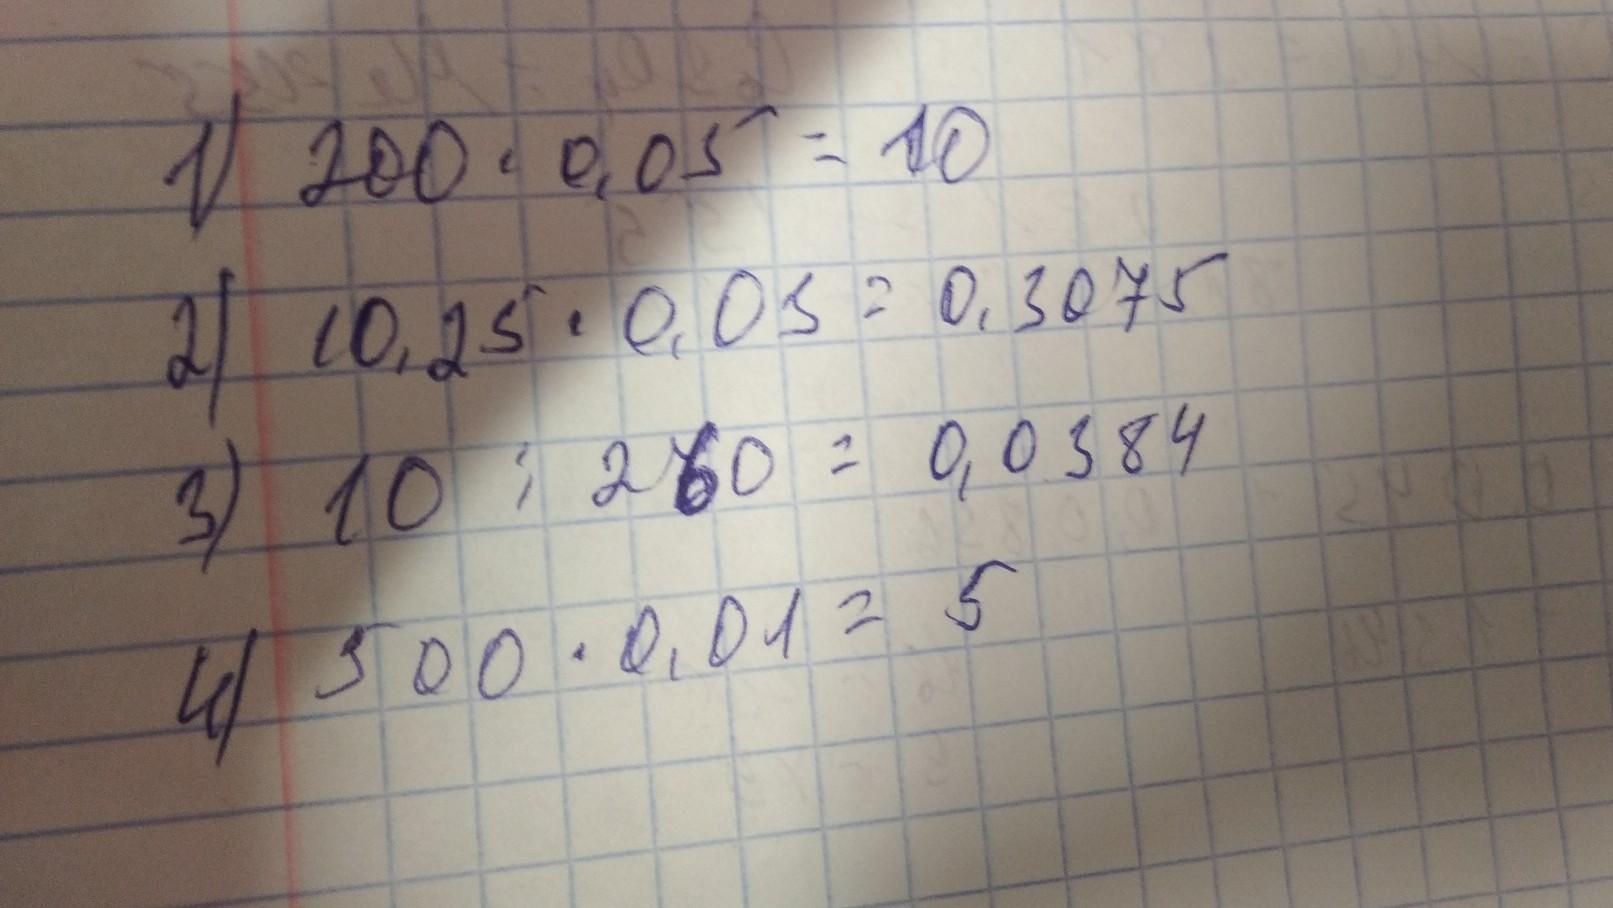 1) 200 · 0,05 = 10
2) 10,25 · 0,03 = 0,3075
3) 10 : 260 = 0,0384
4) 500 · 0,01 = 5